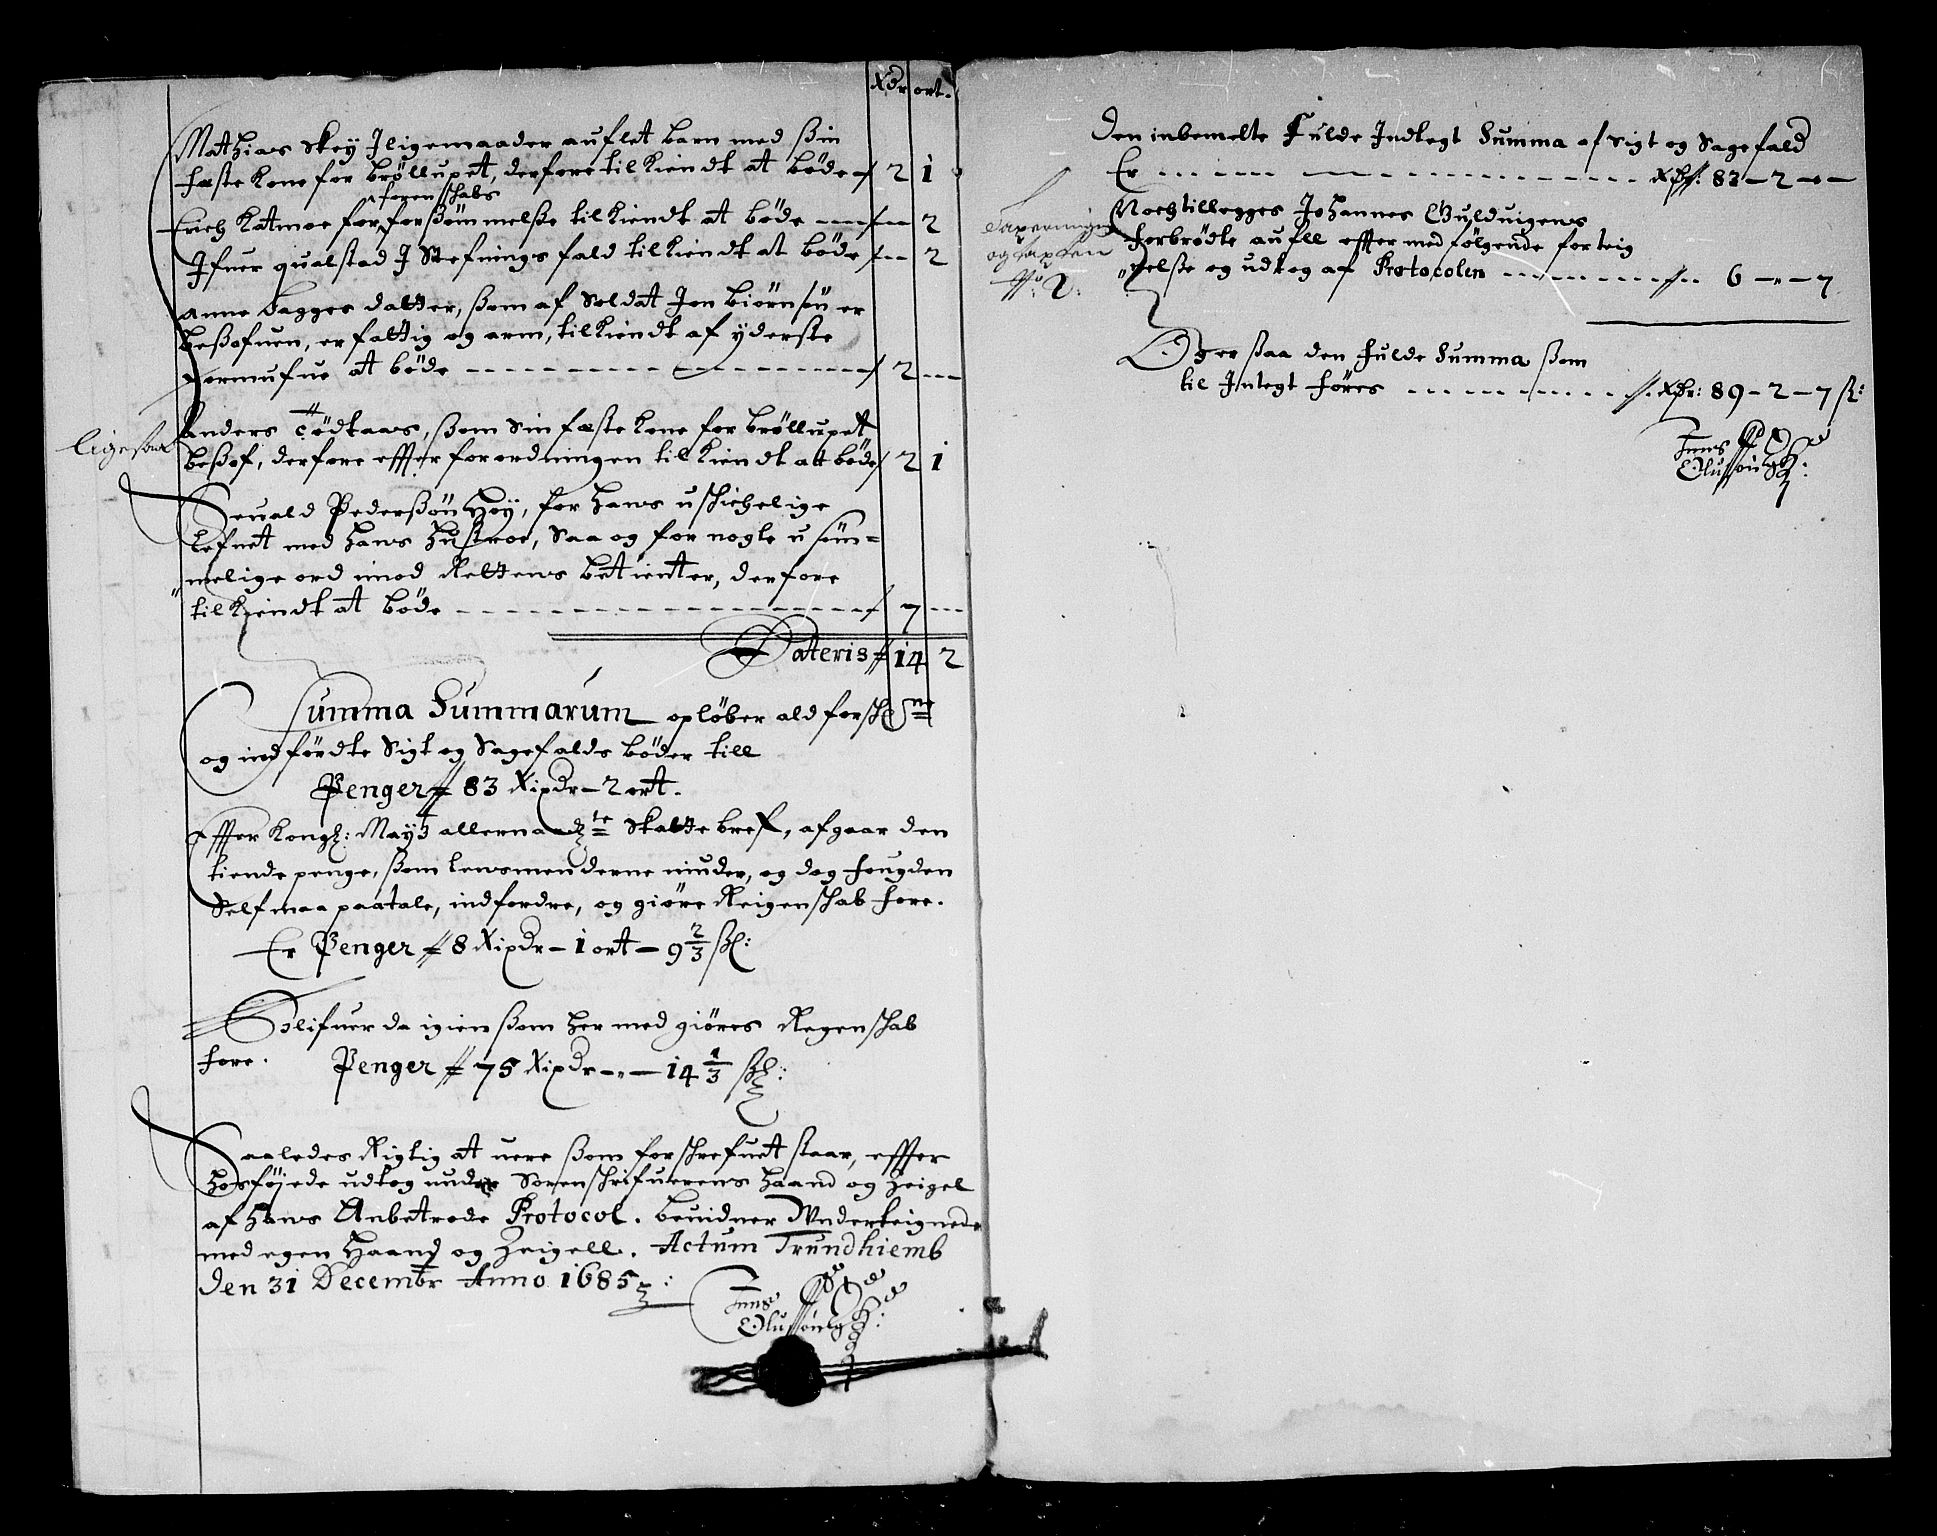 Xdr ort.
Mathias Skey Iligemaader auflet barn med sin
feste kone for brøllupet, derfore tilkiendt at bøde 2 1
forenschabs
Erich Katmoe for, forsømmelse tilkiendt at bøde 2
Ifuer qualstad I Stefnings fald tilkiendt at bøde 2
Anne bagges datter, som af Soldat Jon biørnsøn er
besofuen, er fattig og arm, tilkiendt af yderste
formufue at bøde 2
ligesom
Anders tødtaas, som sin feste kone for brøllupet
besof, derfore effter forordningen tilkiendt att bøde 2 1
Seuald Pedersøn Høy, for hans uschichelige
lefnet med hans hustroe, Saa og for nogle u søm=
melige ord imod Rettens betienter, derfore
tilkiendt at bøde 7
Lateris 14 2
Summa Summarum opløber ald forschne
og indførdte Sigt og Sagefalds bøder till
Penger 83 Rixdr – 2 ort.
Effter Kongl: Mayts allernaadte Skatte bref, afgaar den
tiende penge, som lensmenderne niuder, og dog fougden
Self maa paatale, indfordre, og giøre Reigenschab fore.
Er Penger 8 Rixdr – 1 ort – 9 2/3 sz:
Blifuer da igien som her med giøres Regenschab
fore. Penger 75 Rixdr – " – 14 1/3 sz:
Saaledes Rigtig at uere som forschrefuet staar, effter
hosføjede udtog under Sorenschrifuerens haand og Zeigel
af hans Anbetrode Protocol. beuidner Underteignede
med egen Haand og Zeigell. Actum Trundhiemb
den 31 Decembr Anno 1685:
Jens
Olufsøn
Den inbemelte Fulde Indtegt Summa af Sigt og Sagefald
Er Rdr: 83 – 2 – " –
Noch tillegges Johannes Guldvigens
forbrødte aufll effter medfølgende forteig
nelse og udtog af Protocolen 6 – " – 7
og taxten
Er saa den fulde Summa som
til Integt føres Rdr: 89 – 2 – 7 sz:
Jens
Olufsøn